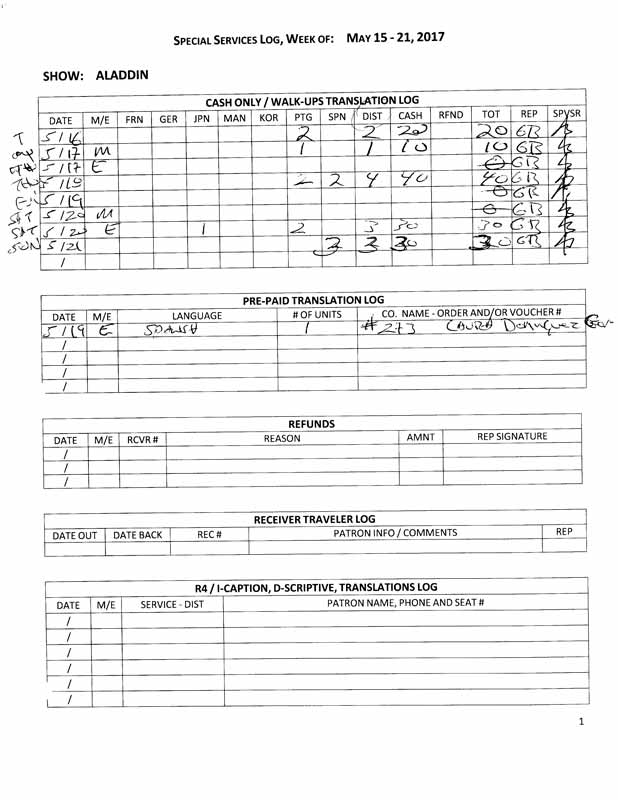 SPECIAL SERVICES LOG, WEEK OF: MAY 15 - 21, 2017
SHOW: ALADDIN
CASH ONLY / WALK-UPS TRANSLATION LOG
DATE M/E FRN GER JPN MAN KOR PTG SPN DIST CASH RFND TOT REP SPVSR
T 5/16 2 2 20 20 GB
5/17 M 1 1 10 10 GB
5/17 E 0 GB
5/18 2 2 4 40 40 GB
Fri 5/19 0 GB
SAT 5/20 M 0 GB
SAT 5/20 E 1 2 3 30 30 GB
SUN 5/21 3 3 30 30 GB
/
PRE-PAID TRANSLATION LOG
DATE M/E LANGUAGE # OF UNITS CO. NAME - ORDER AND/OR VOUCHER #
5/19 E SPANISH 1 # 273 LAURA Dominguez
/
/
/
/
REFUNDS
DATE M/E RCVR # REASON AMNT REP SIGNATURE
/
/
/
RECEIVER TRAVELER LOG
DATE OUT DATE BACK REC # PATRON INFO / COMMENTS REP
R4 / I-CAPTION, D-SCRIPTIVE, TRANSLATIONS LOG
DATE M/E SERVICE - DIST PATRON NAME, PHONE AND SEAT #
/
/
/
/
/
/
1